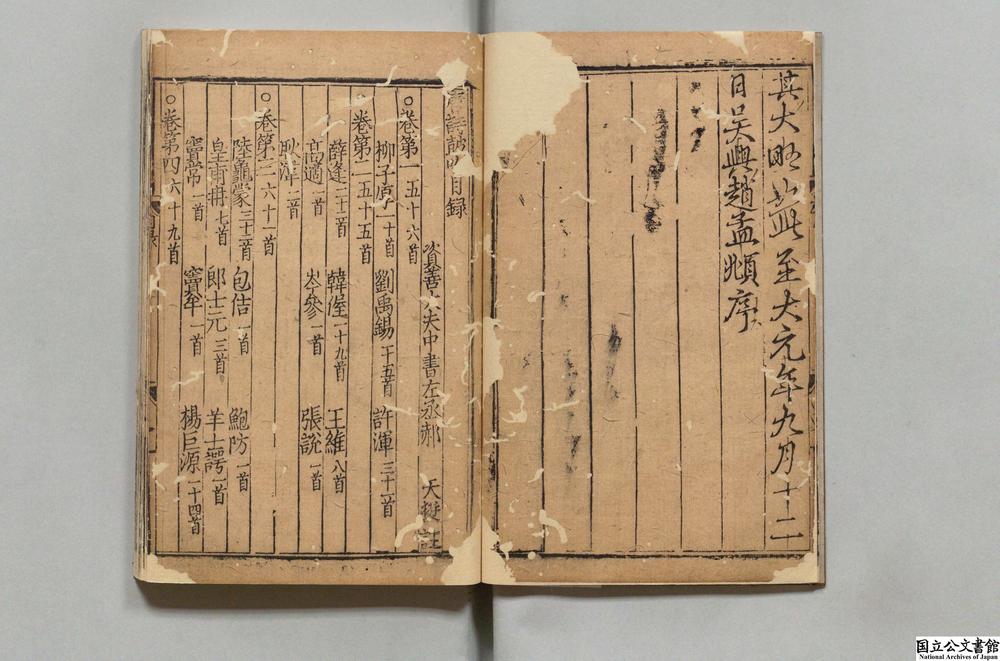 其大略如此至大元年九月十二
日吴興趙孟頫序
唐詩鼓吹目録
資善大夫中書左丞郝 天挺 註
○卷第一 五十六首
柳子厚 一十首 劉禹錫 一十五首 許渾 三十一首
卷第二 五十五首
薛逢 二十二首 韓偓 一十九首 王維 八首
高適 一首 岑參 一首 張說 一首
耿湋 二首
○卷第三 六十一首
陸龜蒙 三十三首 包佶 一首 鮑防 一首
皇甫冉 七首 郎士元 三首 羊士諤 一首
竇常 一首 竇牟 一首 楊巨源 一十四首
○卷第四 六十九首
国立公文書館
National Archives of Japan